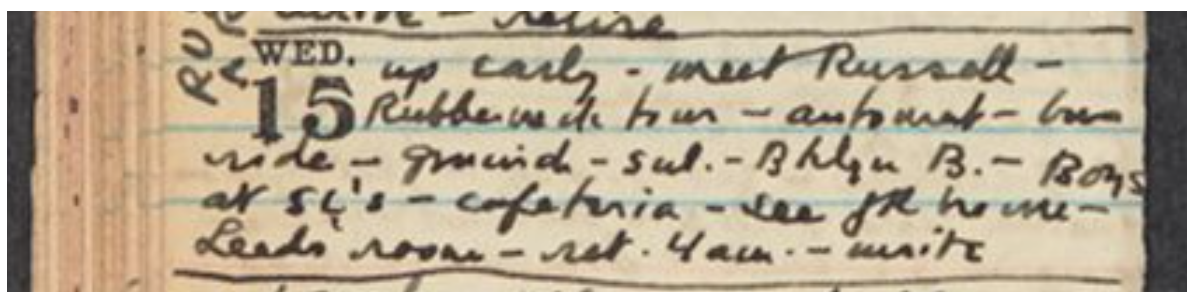 write – retire
WED.
15
up early – meet Russell –
Rubberneck tour – automat – bus
ride – Grnwich – sub. – Bklyn B. – Boys
at SL's – cafeteria – see home –
Leeds' room – ret. 4 am. – write